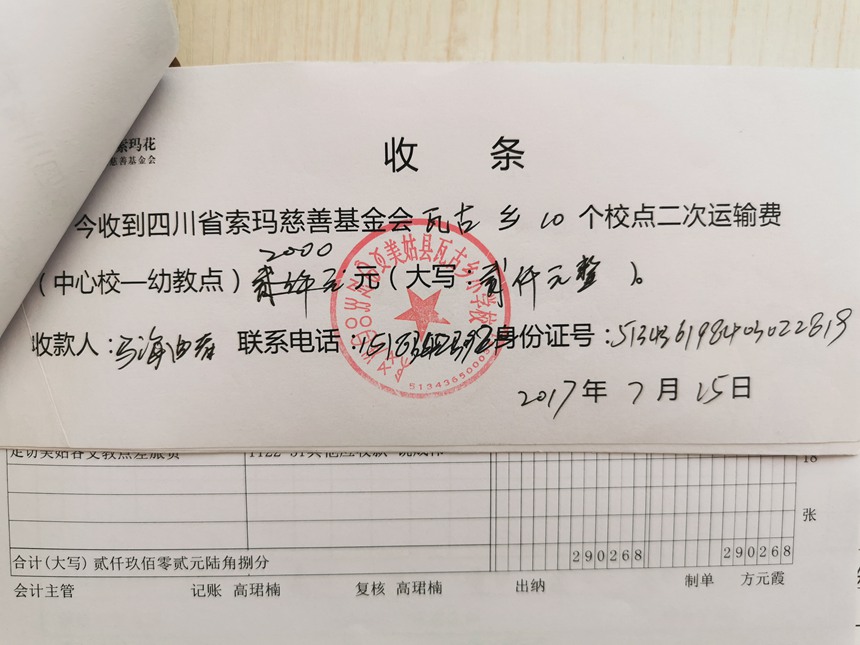 索玛花
慈善基金会
收 条
今收到四川省索玛慈善基金会瓦古乡10个校点二次运输费
2000
(中心校—幼教点)贰仟元元(大写:贰仟元整)。
收款人: 联系电话: 身份证号:513436198403022819
美姑县瓦古乡小学校
2017年7月25日
走访美姑各支教点差旅费
18
张
合计(大写) 贰仟玖佰零贰元陆角捌分 290268 290268
会计主管 记账 高珺楠 复核 高珺楠 出纳 制单 方元霞